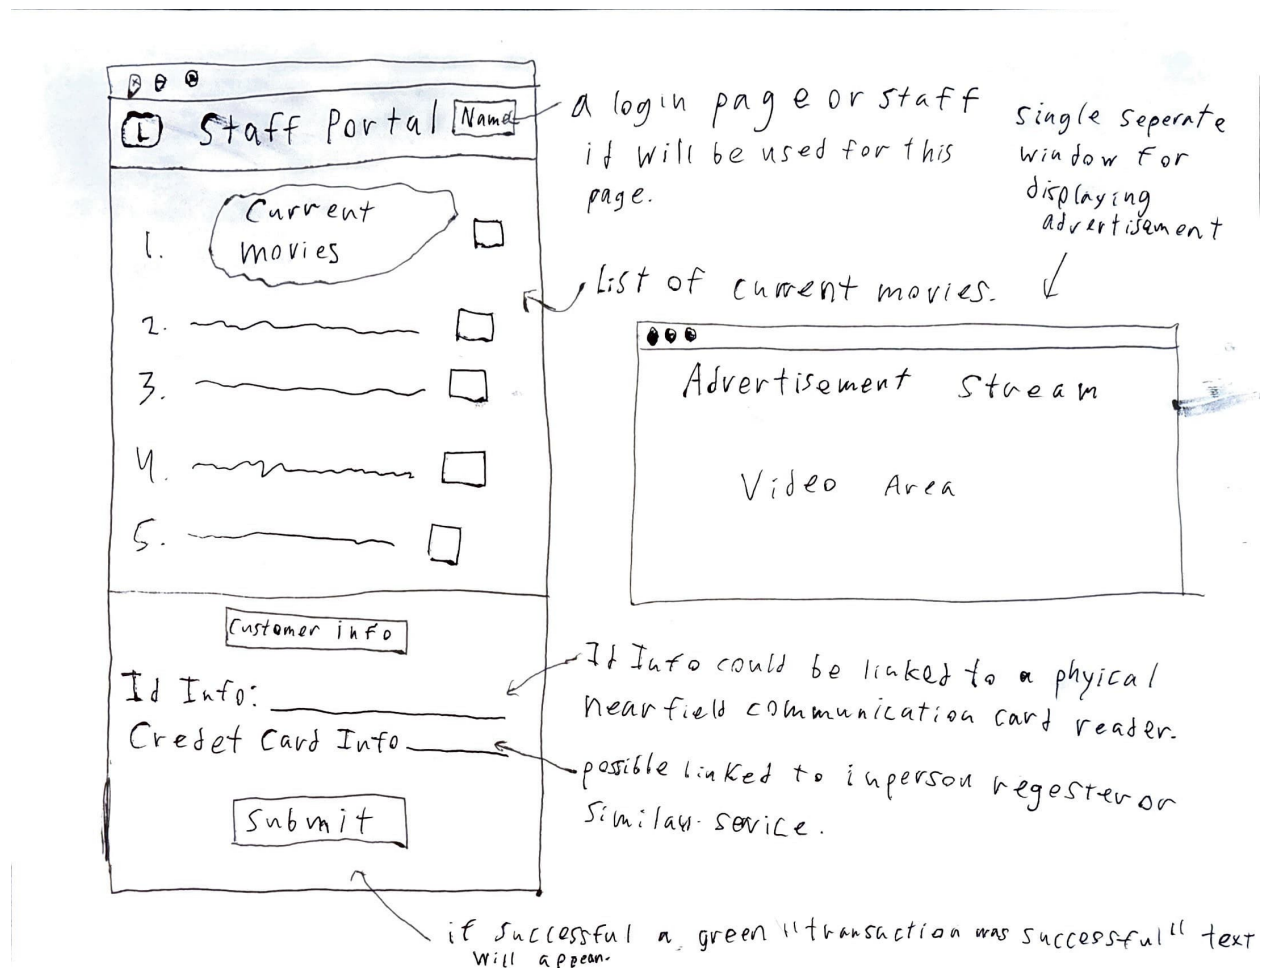 L Staff Portal Name
1. Current
movies
2.
3.
4.
5.
Customer info
Id Info:
Credet Card Info
Submit
a login page or staff
id will be used for this
page.
List of current movies.
single seperate
window for
displaying
advertisement
Advertisement Stream
Video Area
Id Info could be linked to a phyical
near field communication card reader.
possible linked to inperson regester or
similar service.
if successful a green "transaction was successful" text
will appear.